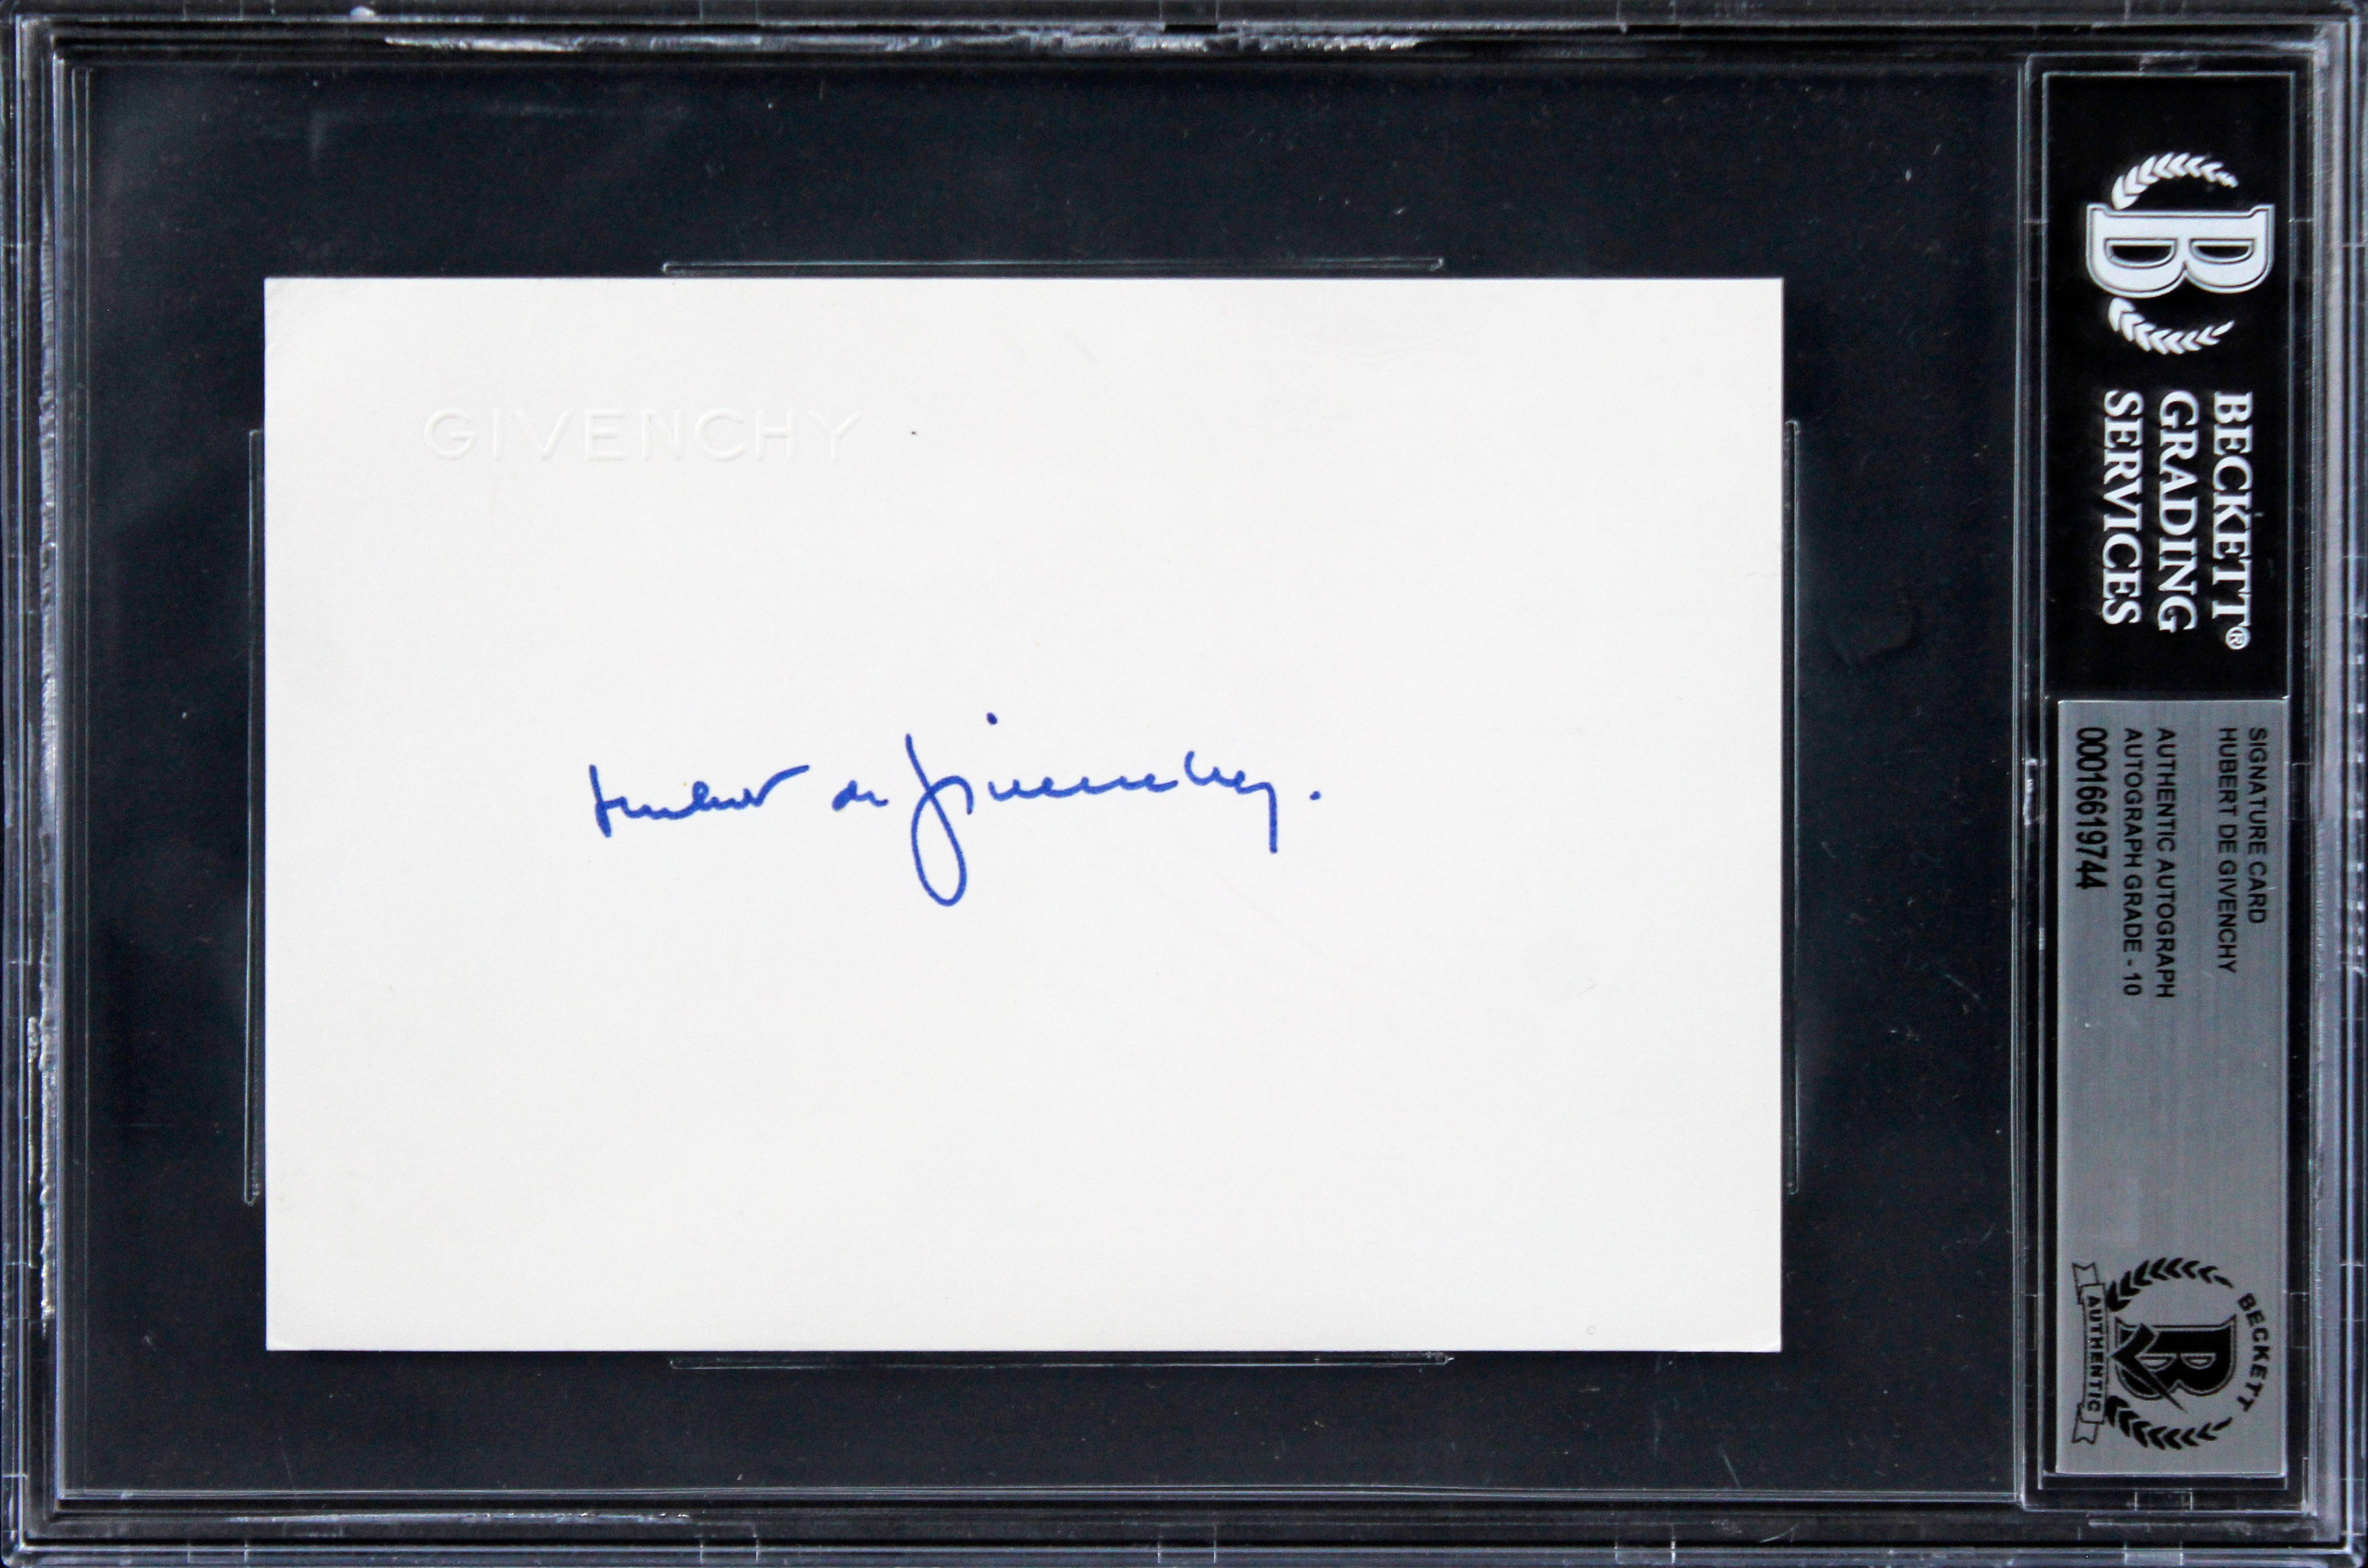 GIVENCHY
Hubert de Givenchy.
BECKETT®
GRADING
SERVICES
SIGNATURE CARD
HUBERT DE GIVENCHY
AUTHENTIC AUTOGRAPH
AUTOGRAPH GRADE - 10
00016619744
BECKETT
AUTHENTIC